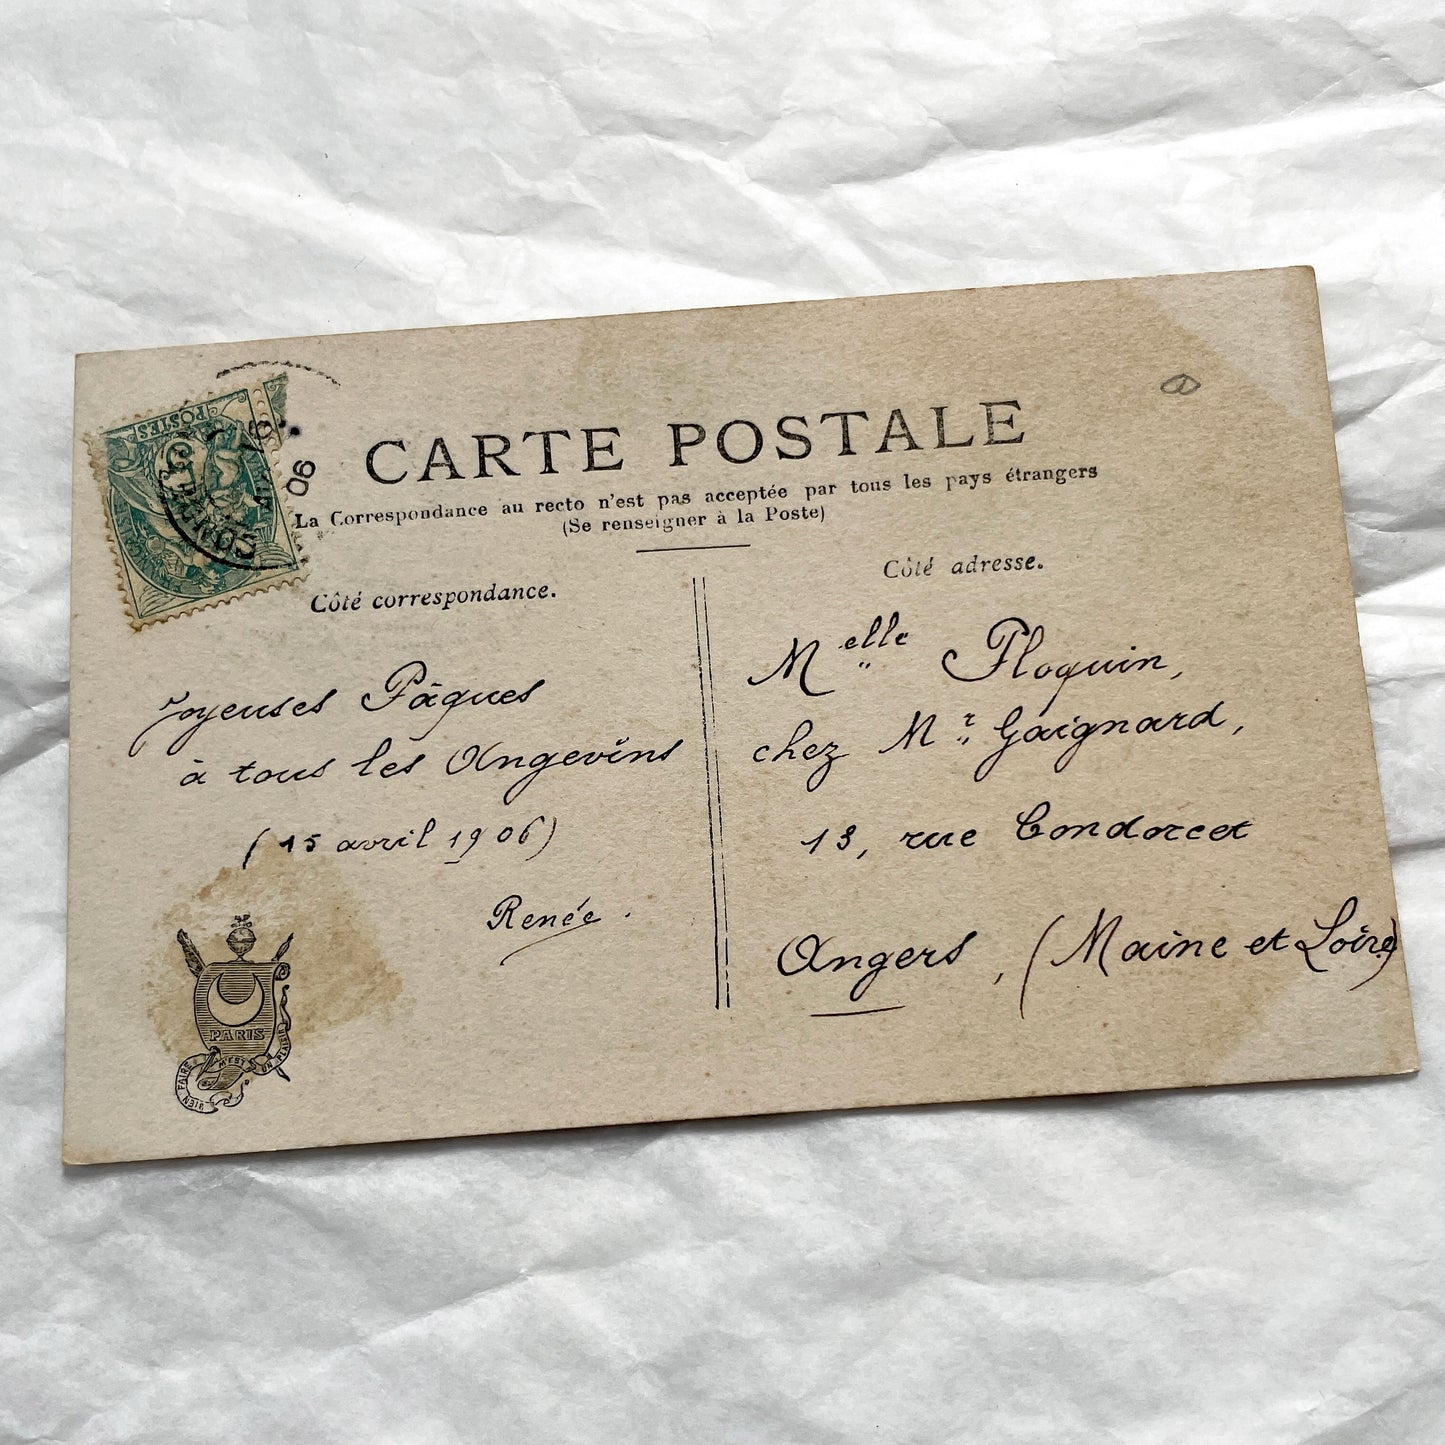 CARTE POSTALE
La Correspondance au recto n'est pas acceptée par tous les pays étrangers
(Se renseigner à la Poste)
POSTES
5
06
Côté correspondance.
Joyeuses Pâques
à tous les Angevins
(15 avril 1906)
Renée.
PARIS
BIEN FAIRE M'EST UN PLAISIR
Côté adresse.
Melle Ploquin,
chez Mr Gaignard,
13, rue Condorcet
Angers, (Maine et Loire)